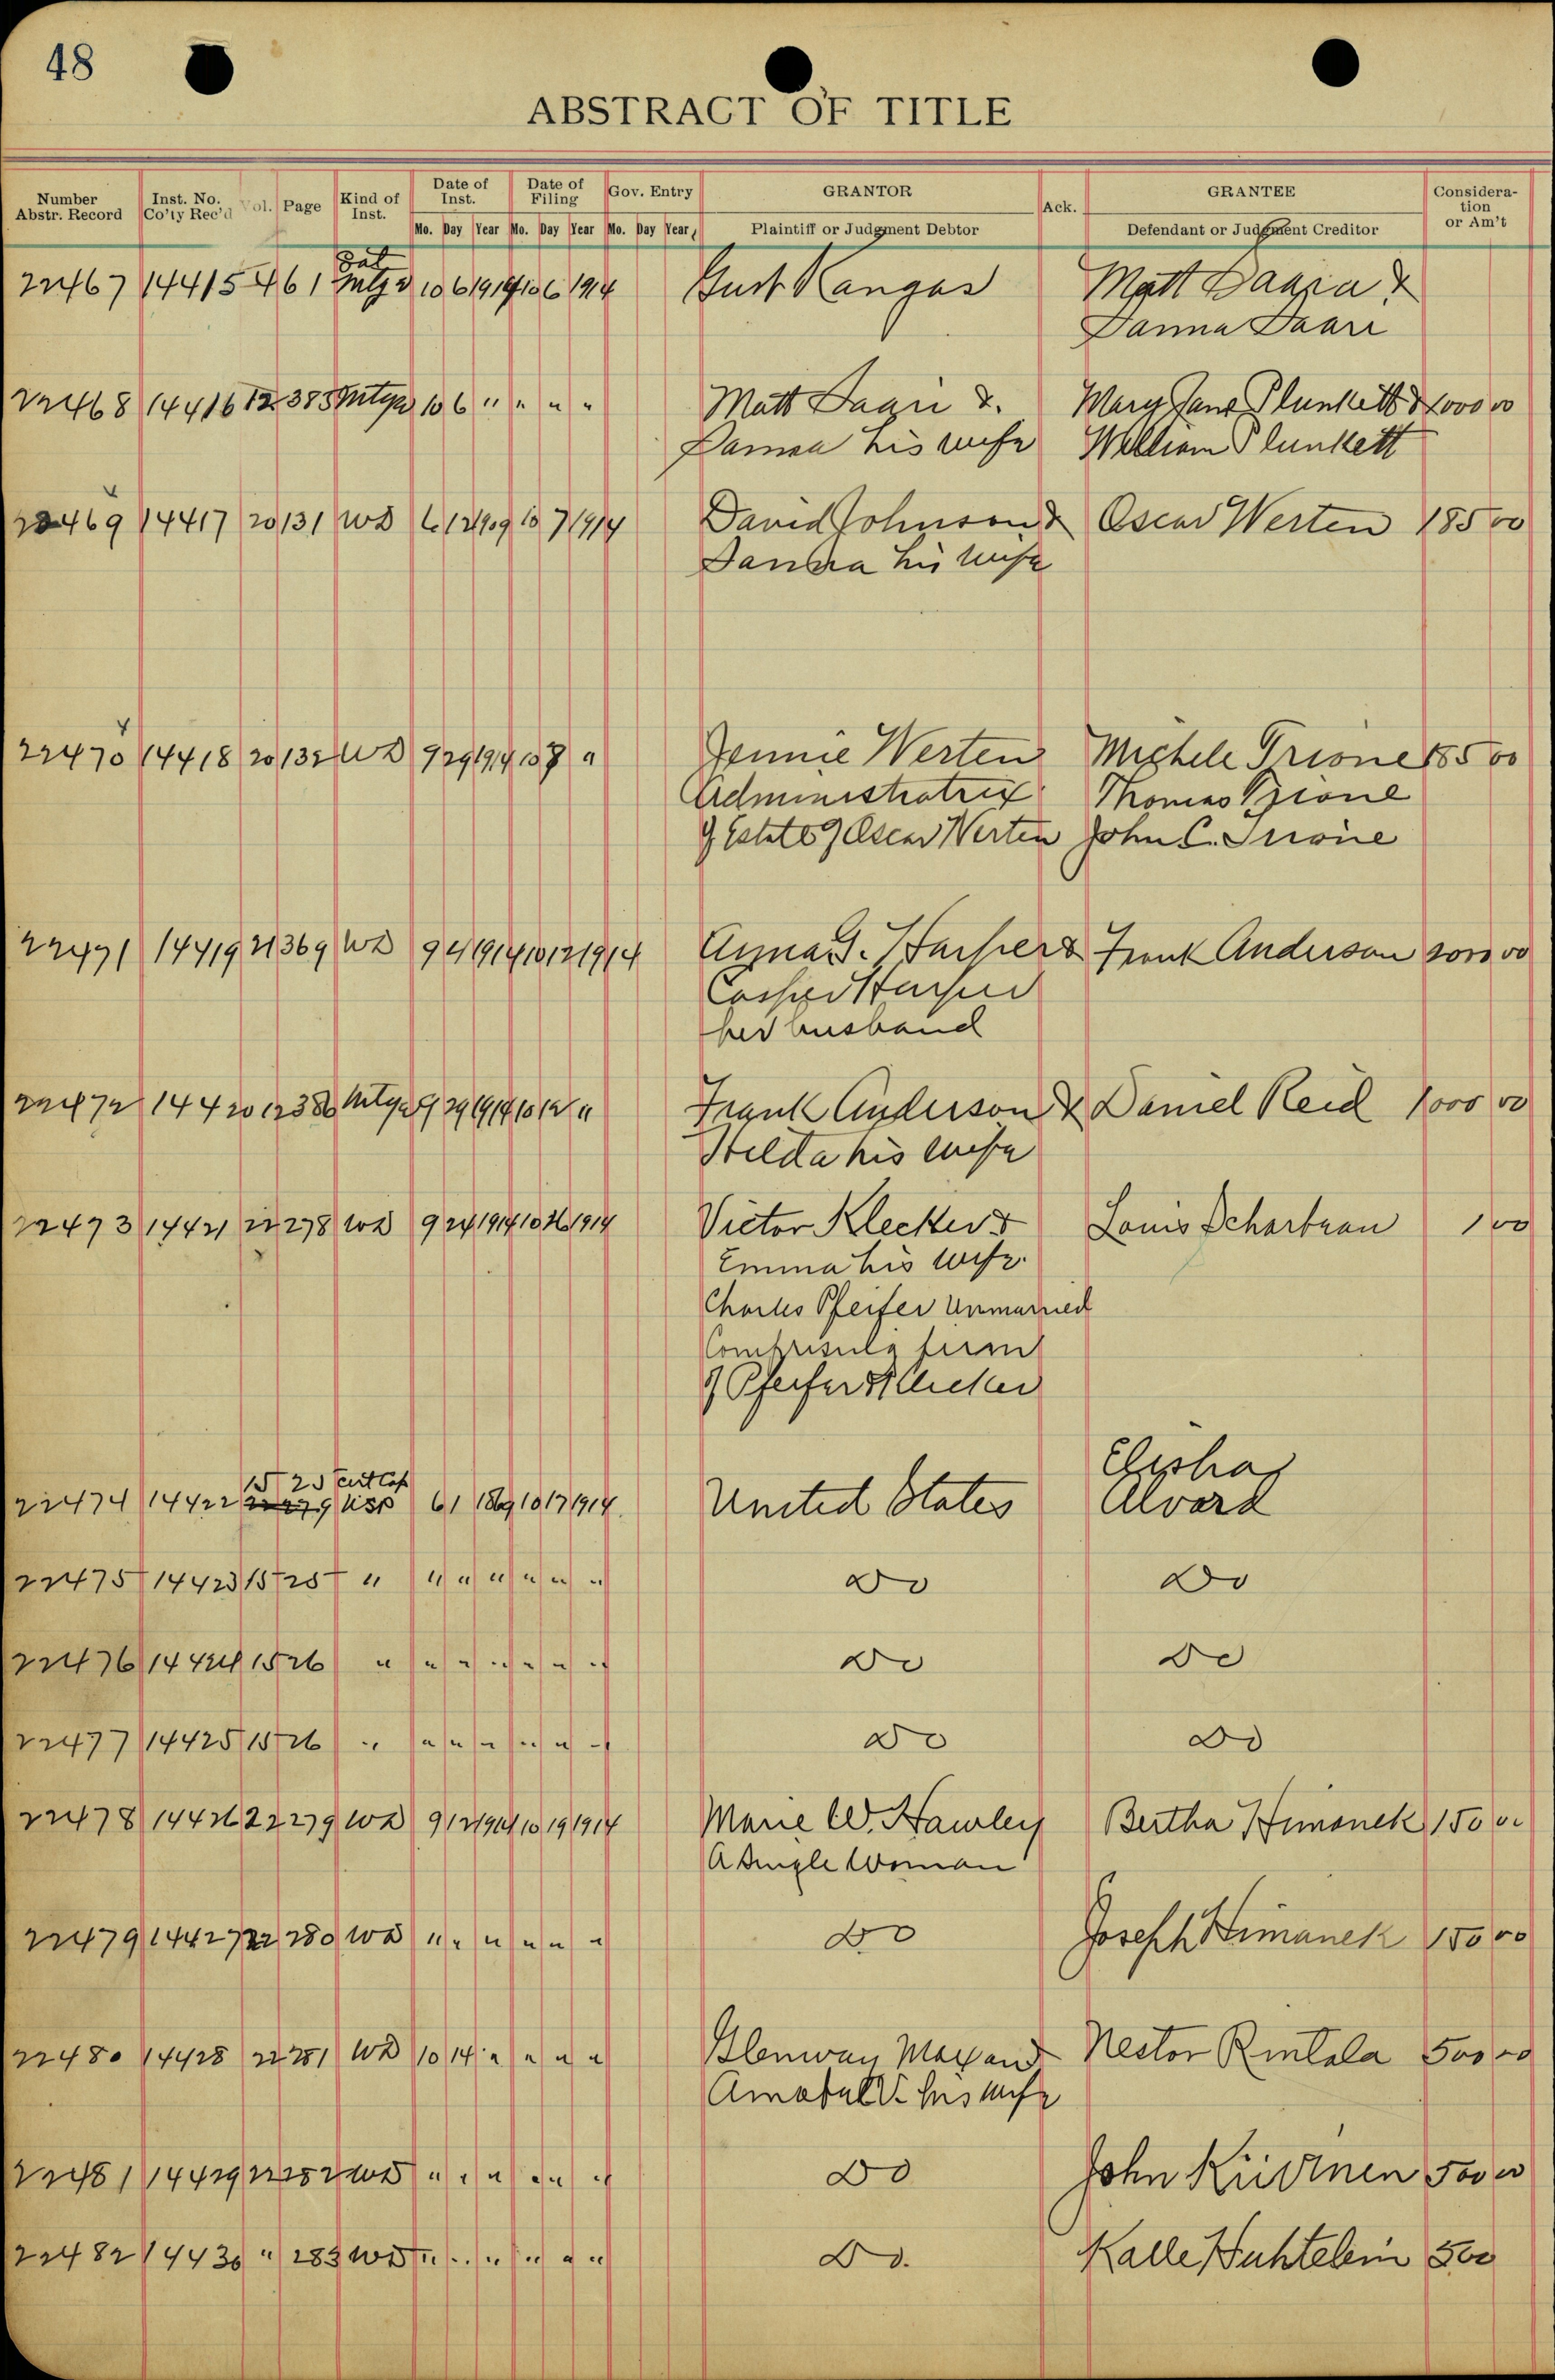 48
ABSTRACT OF TITLE
Number Abstr. Record Inst. No. Co'ty Rec'd Vol. Page Kind of Inst. Date of Inst. Date of Filing Gov. Entry GRANTOR Ack. GRANTEE Consideration or Am't
Mo. Day Year Mo. Day Year Mo. Day Year Plaintiff or Judgment Debtor Defendant or Judgment Creditor
Sat
22467 14415 461 Mtge 10 6 1914 10 6 1914 Gust Kangas Matt Saari &
Sanna Saari
22468 14416 12 385 Mtge 10 6 " " " " Matt Saari & Mary Jane Plunkett & 1000 00
Sanna his wife William Plunkett
22469 14417 20 131 WD 6 12 1909 10 7 1914 David Johnson & Oscar Werten 185 00
Sanna his wife
22470 14418 20 132 WD 9 29 1914 10 8 " Jennie Werten Michele Trione 185 00
Administratrix Thomas Trione
of Estate of Oscar Werten John C. Trione
22471 14419 21 369 WD 9 4 1914 10 12 1914 Anna G. Harper & Frank Anderson 2000 00
Casper Harper
her husband
22472 14420 12 386 Mtge 9 29 1914 10 12 " Frank Anderson & Daniel Reid 1000 00
Hilda his wife
22473 14421 22 278 WD 9 24 1914 10 16 1914 Victor Klecker & Louis Schartrau 1 00
Emma his wife
Charles Pfeifer Unmarried
Comprising firm
of Pfeifer & Klecker
15 25 Cert Cop Elisha
22474 14422 22 279 USP 6 1 1869 10 17 1914 United States Alvord
22475 14423 15 25 " " " " " " " Do Do
22476 14424 15 26 " " " " " " " Do Do
22477 14425 15 26 " " " " " " " Do Do
22478 14426 22 279 WD 9 12 1914 10 19 1914 Marie W. Hawley Bertha Himanek 150 00
A Single Woman
22479 14427 22 280 WD " " " " " " Do Joseph Himanek 150 00
22480 14428 22 281 WD 10 14 " " " " Glenway Maxon & Nestor Rintala 500 00
Amabel V. his wife
22481 14429 22 282 WD " " " " " " Do John Kivinen 500 00
22482 14430 " 283 WD " " " " " " Do. Kalle Huhtelin 500